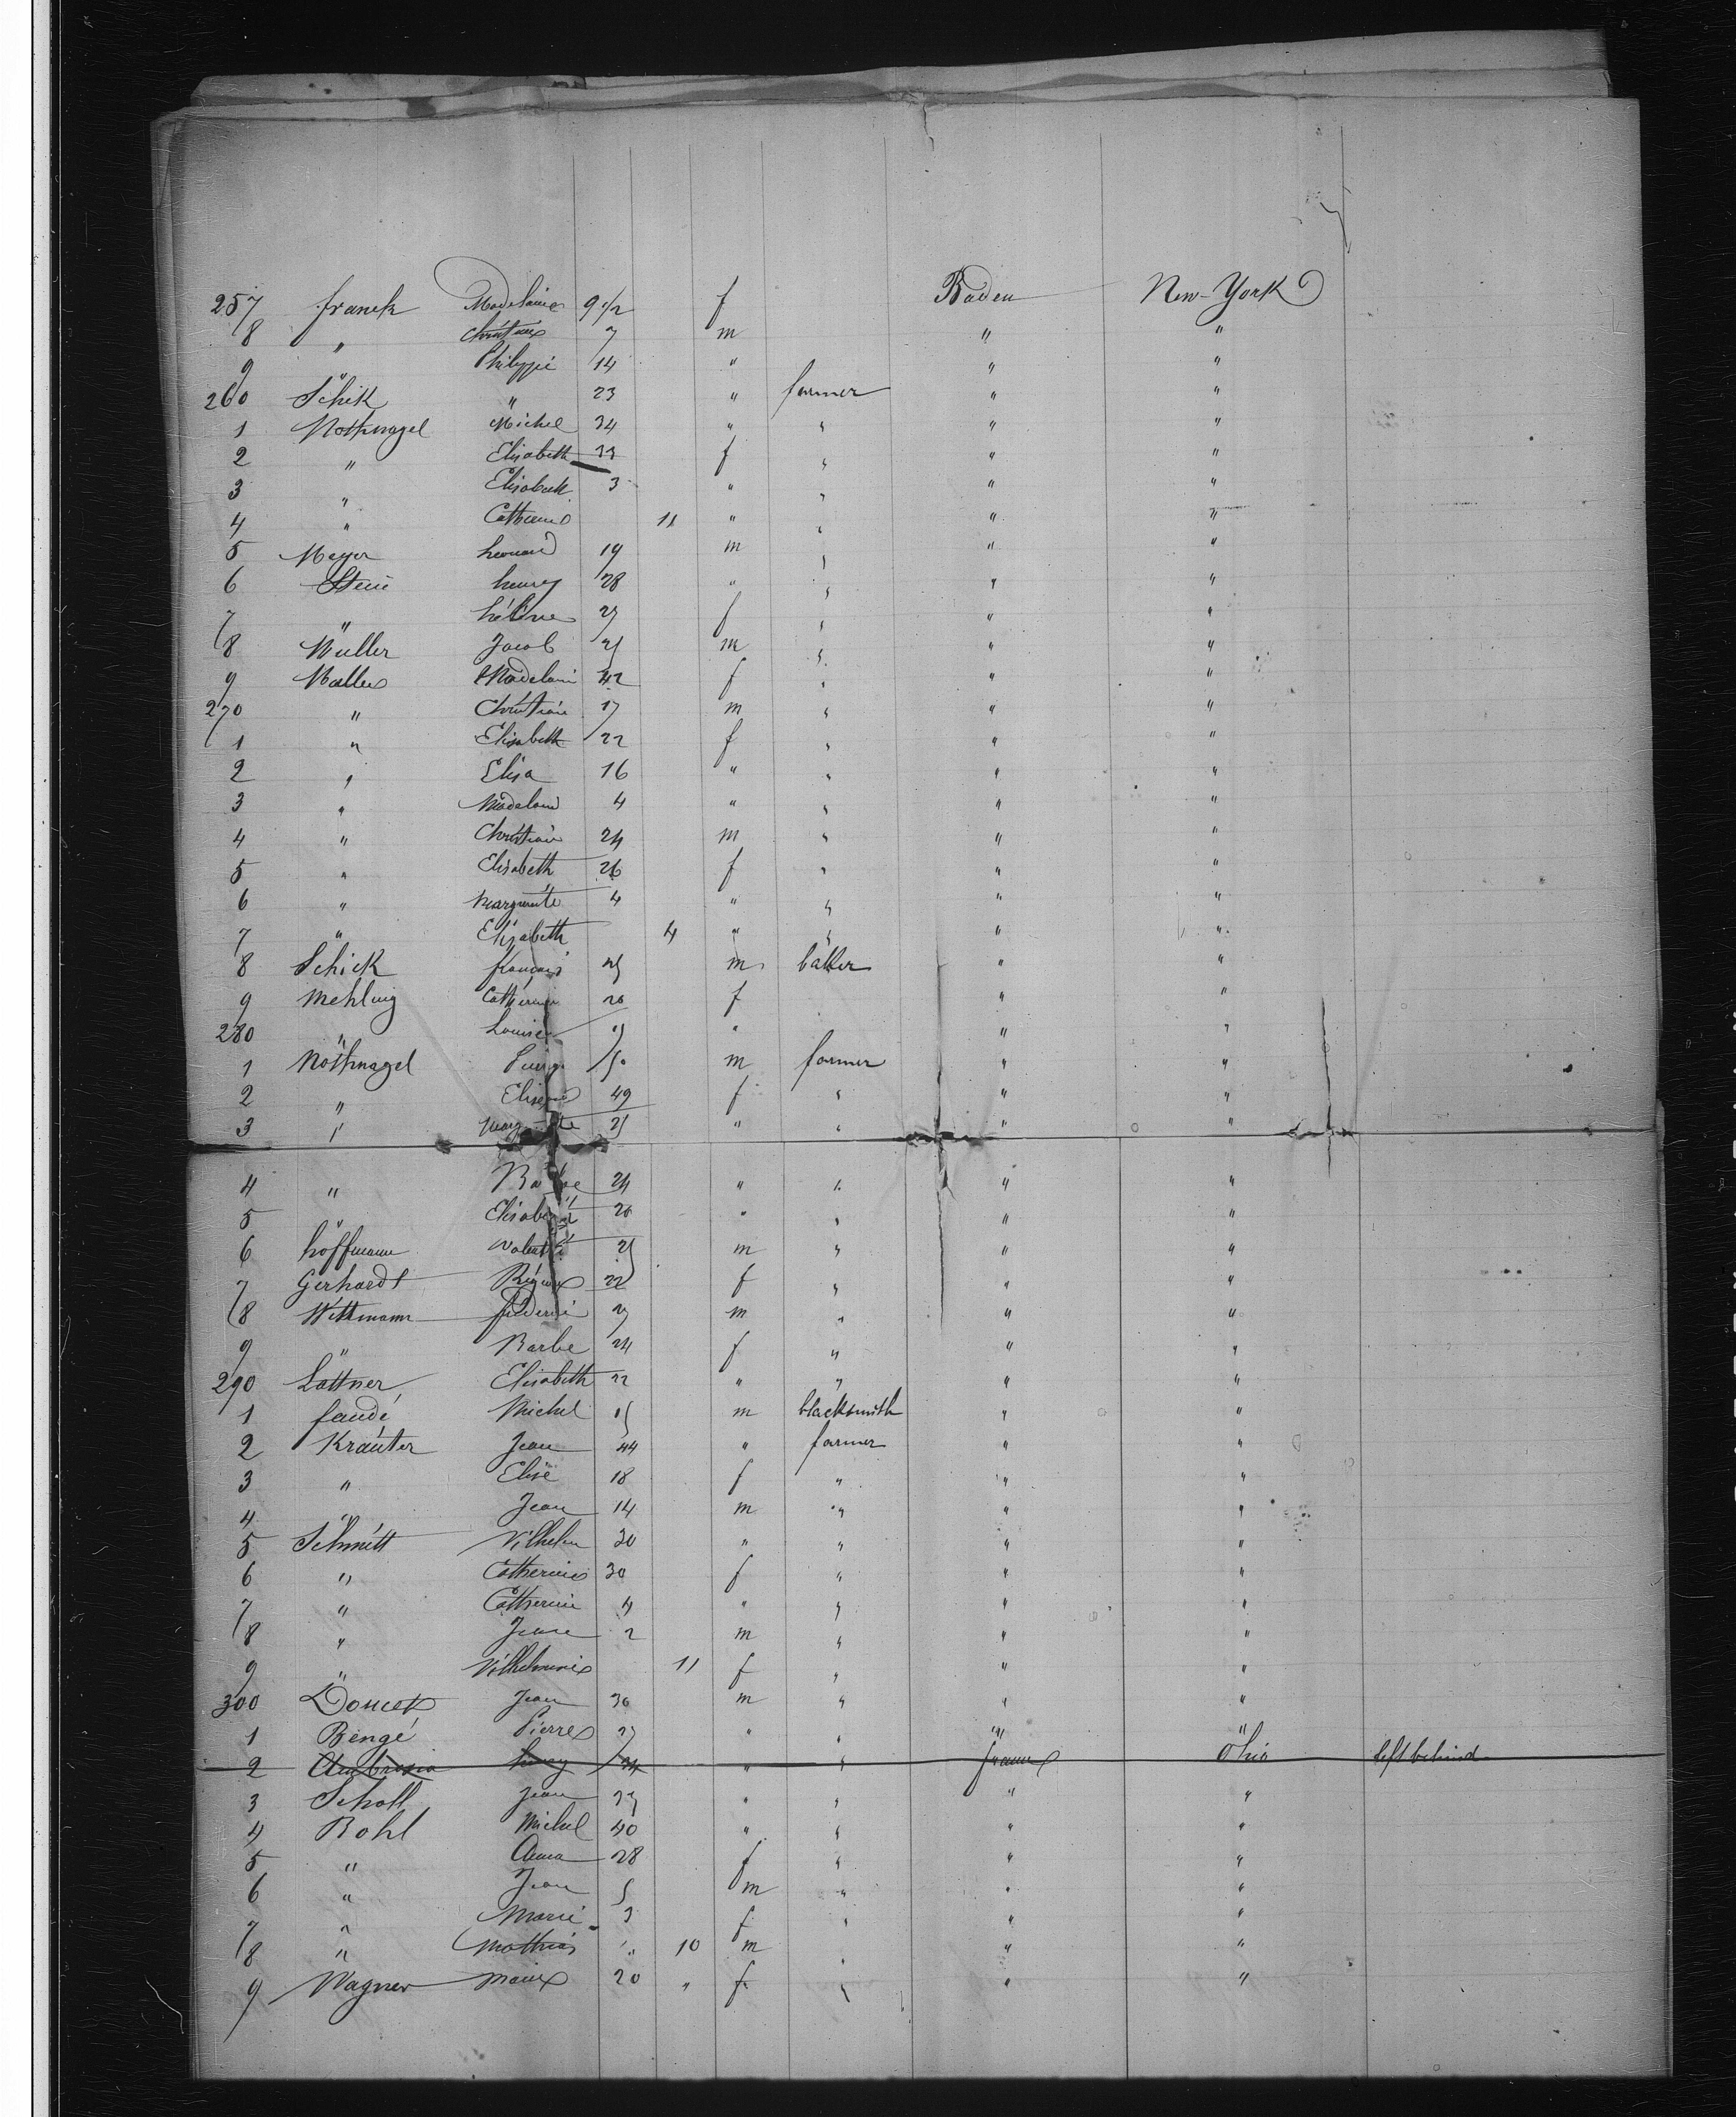 257 franck Madelaine 9 1/2 f Baden New-York
8 " Christian 7 m " "
9 " Philippe 14 " " "
260 Schik " 23 " farmer " "
1 Nothnagel Michel 34 " " " "
2 " Elisabeth 33 f " " "
3 " Elisabeth 3 " " " "
4 " Catherine 11 " " " "
5 Meyer Leonard 19 m " " "
6 Stein henry 28 " " " "
7 " hélène 27 f " " "
8 Muller Jacob 25 m " " "
9 Madelain 42 f " " "
270 " Christian 17 m " " "
1 " Elisabeth 22 f " " "
2 " Elisa 16 " " " "
3 " Madelaine 4 " " " "
4 " Christian 24 m " " "
5 " Elisabeth 26 f " " "
6 " Marguerite 4 " " " "
7 " Elisabeth 4 " " " "
8 Schick françois 25 m baker " "
9 Mehling Catherine 20 f " "
280 " Louise " " "
1 Nothnagel 50 m farmer " "
2 " 49 f " " "
3 " 25 " " " "
4 " 24 " " " "
5 " Elisabeth 20 " " " "
6 hoffmann Valentin 25 m " " "
7 Gerhardt Régine 22 f " " "
8 Wittmann fréderic 27 m " " "
9 " Barbe 24 f " " "
290 Lattner Elisabeth 22 " " " "
1 faudé Michel m blacksmith " "
2 Kraüter Jean 44 " farmer " "
3 " Elise 18 f " " "
4 " Jean 14 m " " "
5 Schmitt Vilhelm 30 " " " "
6 " Catherine 30 f " " "
7 " Catherine 4 " " " "
8 " Jean 2 m " " "
9 " Vilhelmine 11 f " " "
300 Doucet Jean 36 m " " "
1 Bengé Pierre 27 " " " "
2 Ambrosio henry 24 " " france Ohio left behind
3 Scholl Jean " " " "
4 Bohl Michel 40 " " " "
5 " Anna 28 f " " "
6 " Jean 5 m " " "
7 " Marie 3 f " " "
8 " Mathias " 10 m " " "
9 Wagner Marie 20 " f " " "